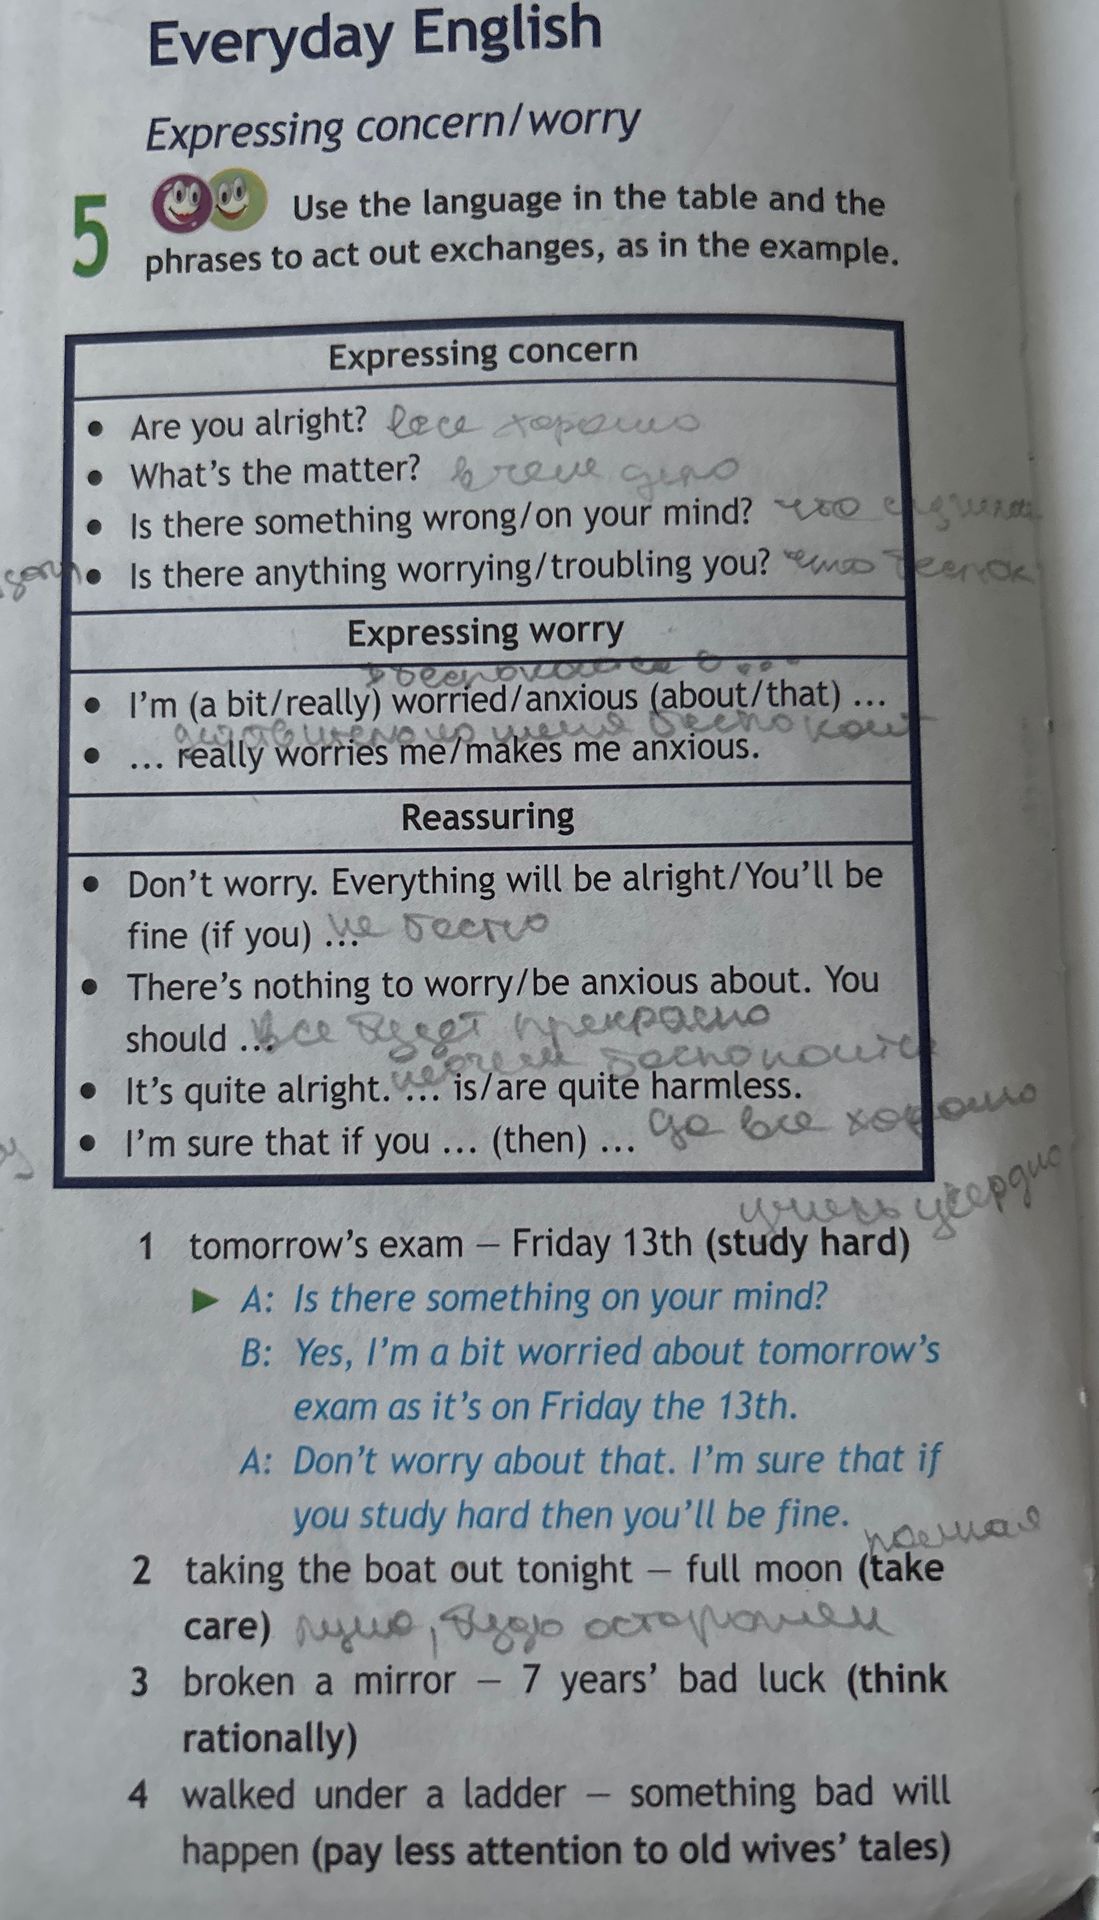 Everyday English
Expressing concern/worry
5 Use the language in the table and the
phrases to act out exchanges, as in the example.
Expressing concern
• Are you alright? все хорошо
• What's the matter? в чем дело
• Is there something wrong/on your mind? что
• Is there anything worrying/troubling you? что
Expressing worry
беспокоюсь о ...
• I'm (a bit/really) worried/anxious (about/that) ...
меня беспокоит
• ... really worries me/makes me anxious.
Reassuring
• Don't worry. Everything will be alright/You'll be
fine (if you) ... не беспо
• There's nothing to worry/be anxious about. You
should ... все будет прекрасно
беспокоится
• It's quite alright. ... is/are quite harmless.
• I'm sure that if you ... (then) ... да все хорошо
учись усердно
1 tomorrow's exam – Friday 13th (study hard)
A: Is there something on your mind?
B: Yes, I'm a bit worried about tomorrow's
exam as it's on Friday the 13th.
A: Don't worry about that. I'm sure that if
you study hard then you'll be fine.
2 taking the boat out tonight – full moon (take
care) луна, будь осторожен
3 broken a mirror – 7 years' bad luck (think
rationally)
4 walked under a ladder – something bad will
happen (pay less attention to old wives' tales)